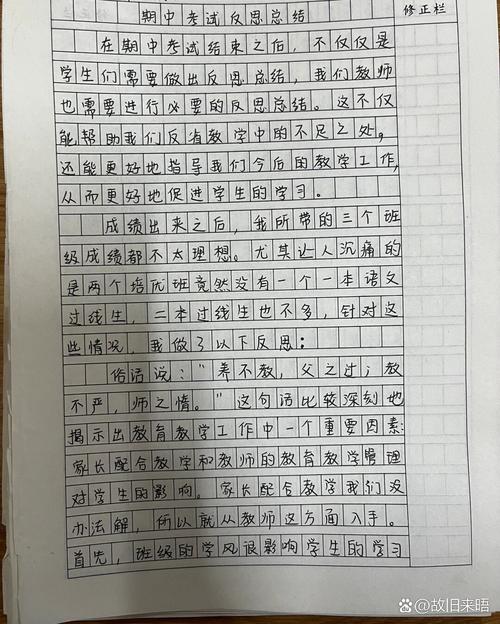 期中考试反思总结
修正栏
在期中考试结束之后，不仅仅是
学生们需要做出反思总结，我们教师
也需要进行必要的反思总结。这不仅
能帮助我们反省教学中的不足之处，
还能更好地指导我们今后的教学工作，
从而更好地促进学生的学习。
成绩出来之后，我所带的三个班
级成绩都不太理想。尤其让人沉痛的
是两个培优班竟然没有一个一本语文
过线生，二本过线生也不多，针对这
些情况，我做了以下反思：
俗话说："养不教，父之过；教
不严，师之情。"这句话比较深刻地
揭示出教育教学工作中一个重要因素：
家长配合教学和教师的教育教学管理
对学生的影响。家长配合教学我们没
办法解，所以就从教师这方面入手。
首先，班级的学风很影响学生的学习
百家号/故旧来晤